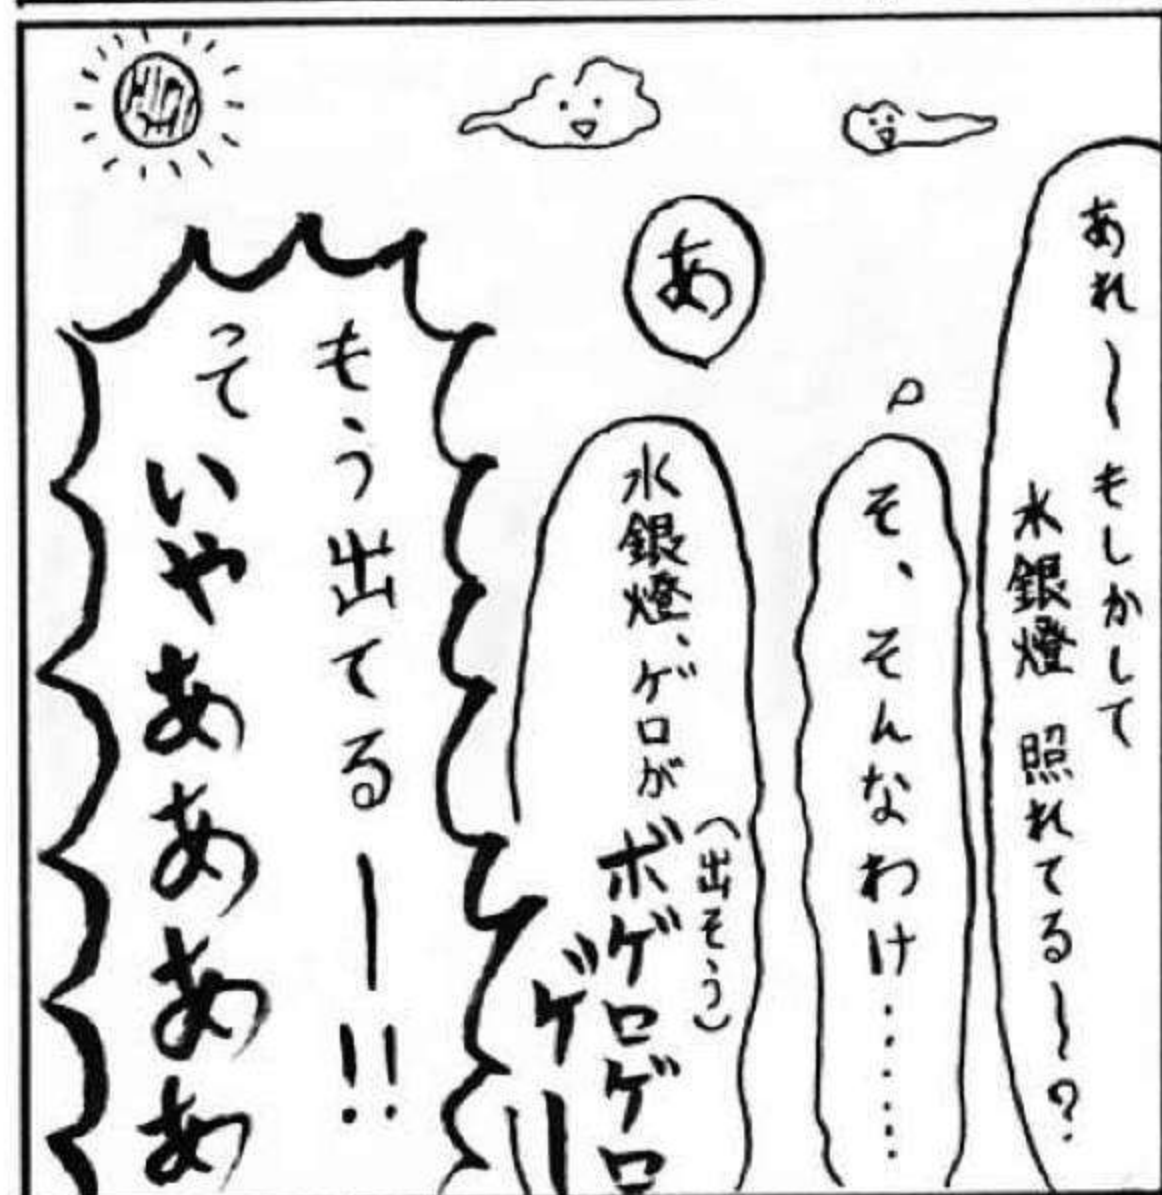 あれ〜もしかして
水銀燈 照れてる〜?
そ、そんなわけ……
あ
水銀燈、ゲロが
(出そう)
ボゲロゲロ
ゲー
もう出てるー!!
って
いやああああ